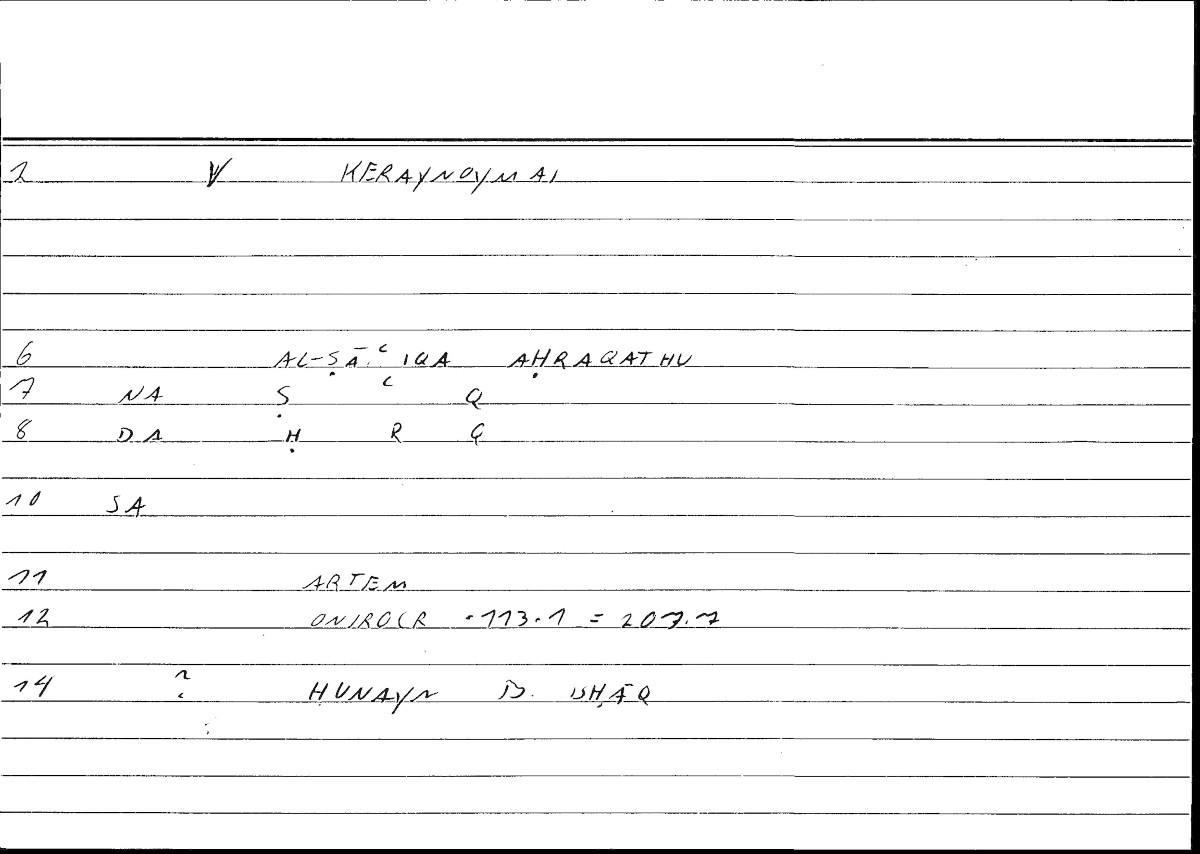 2 V KERAYNOYMAI
6 AL-ṢĀʿIQA AḤRAQATHU
7 NA Ṣ ʿ Q
8 DA Ḥ R Q
10 SA
11 ARTEM
12 ONIROCR .113.1 = 207.7
14 ? ḤUNAYN B. ISḤĀQ